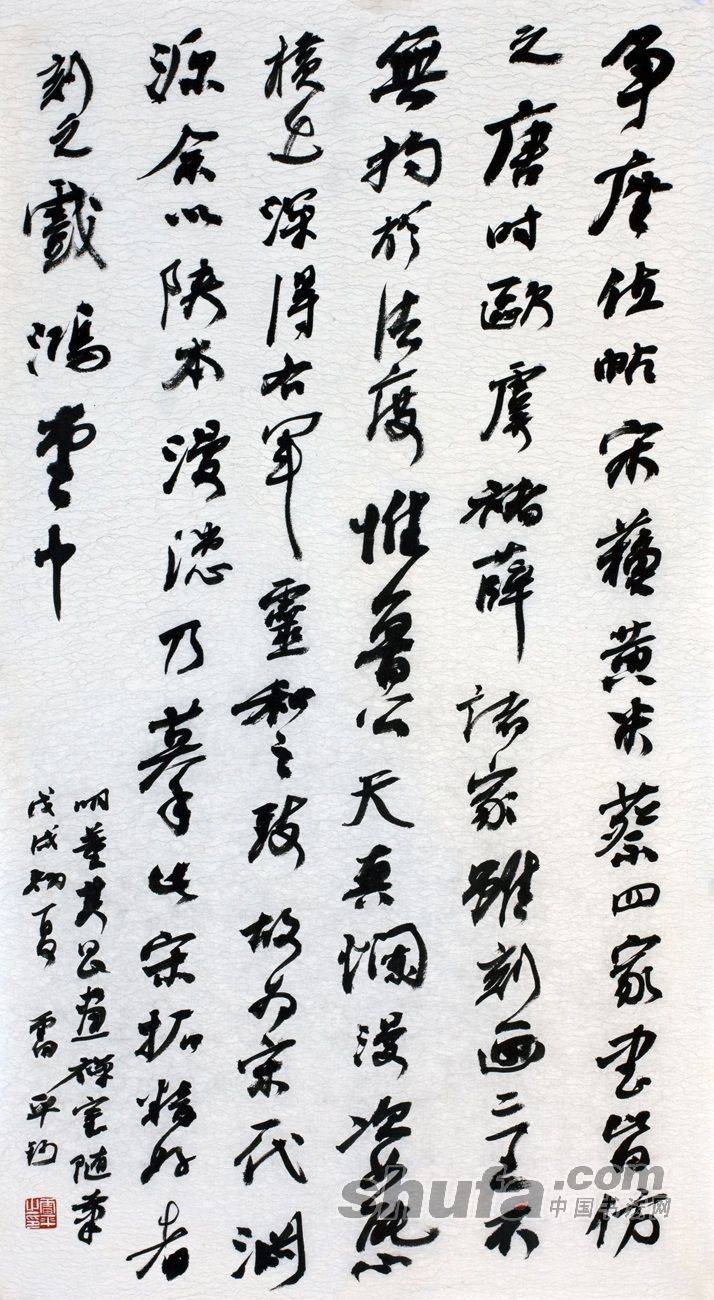 争座位帖宋蘇黄米蔡四家書皆仿
之唐時歐虞褚薛諸家雖刻画二王不
無拘於法度惟魯公天真爛漫姿態
横出深得右軍靈和之致故为宋代淵
源余以陝本漫漶乃摹此宋拓精好者
刻之戲鴻堂中
明董其昌画禅室随筆
戊戌初夏 雷平
shufa.com
中国书法网